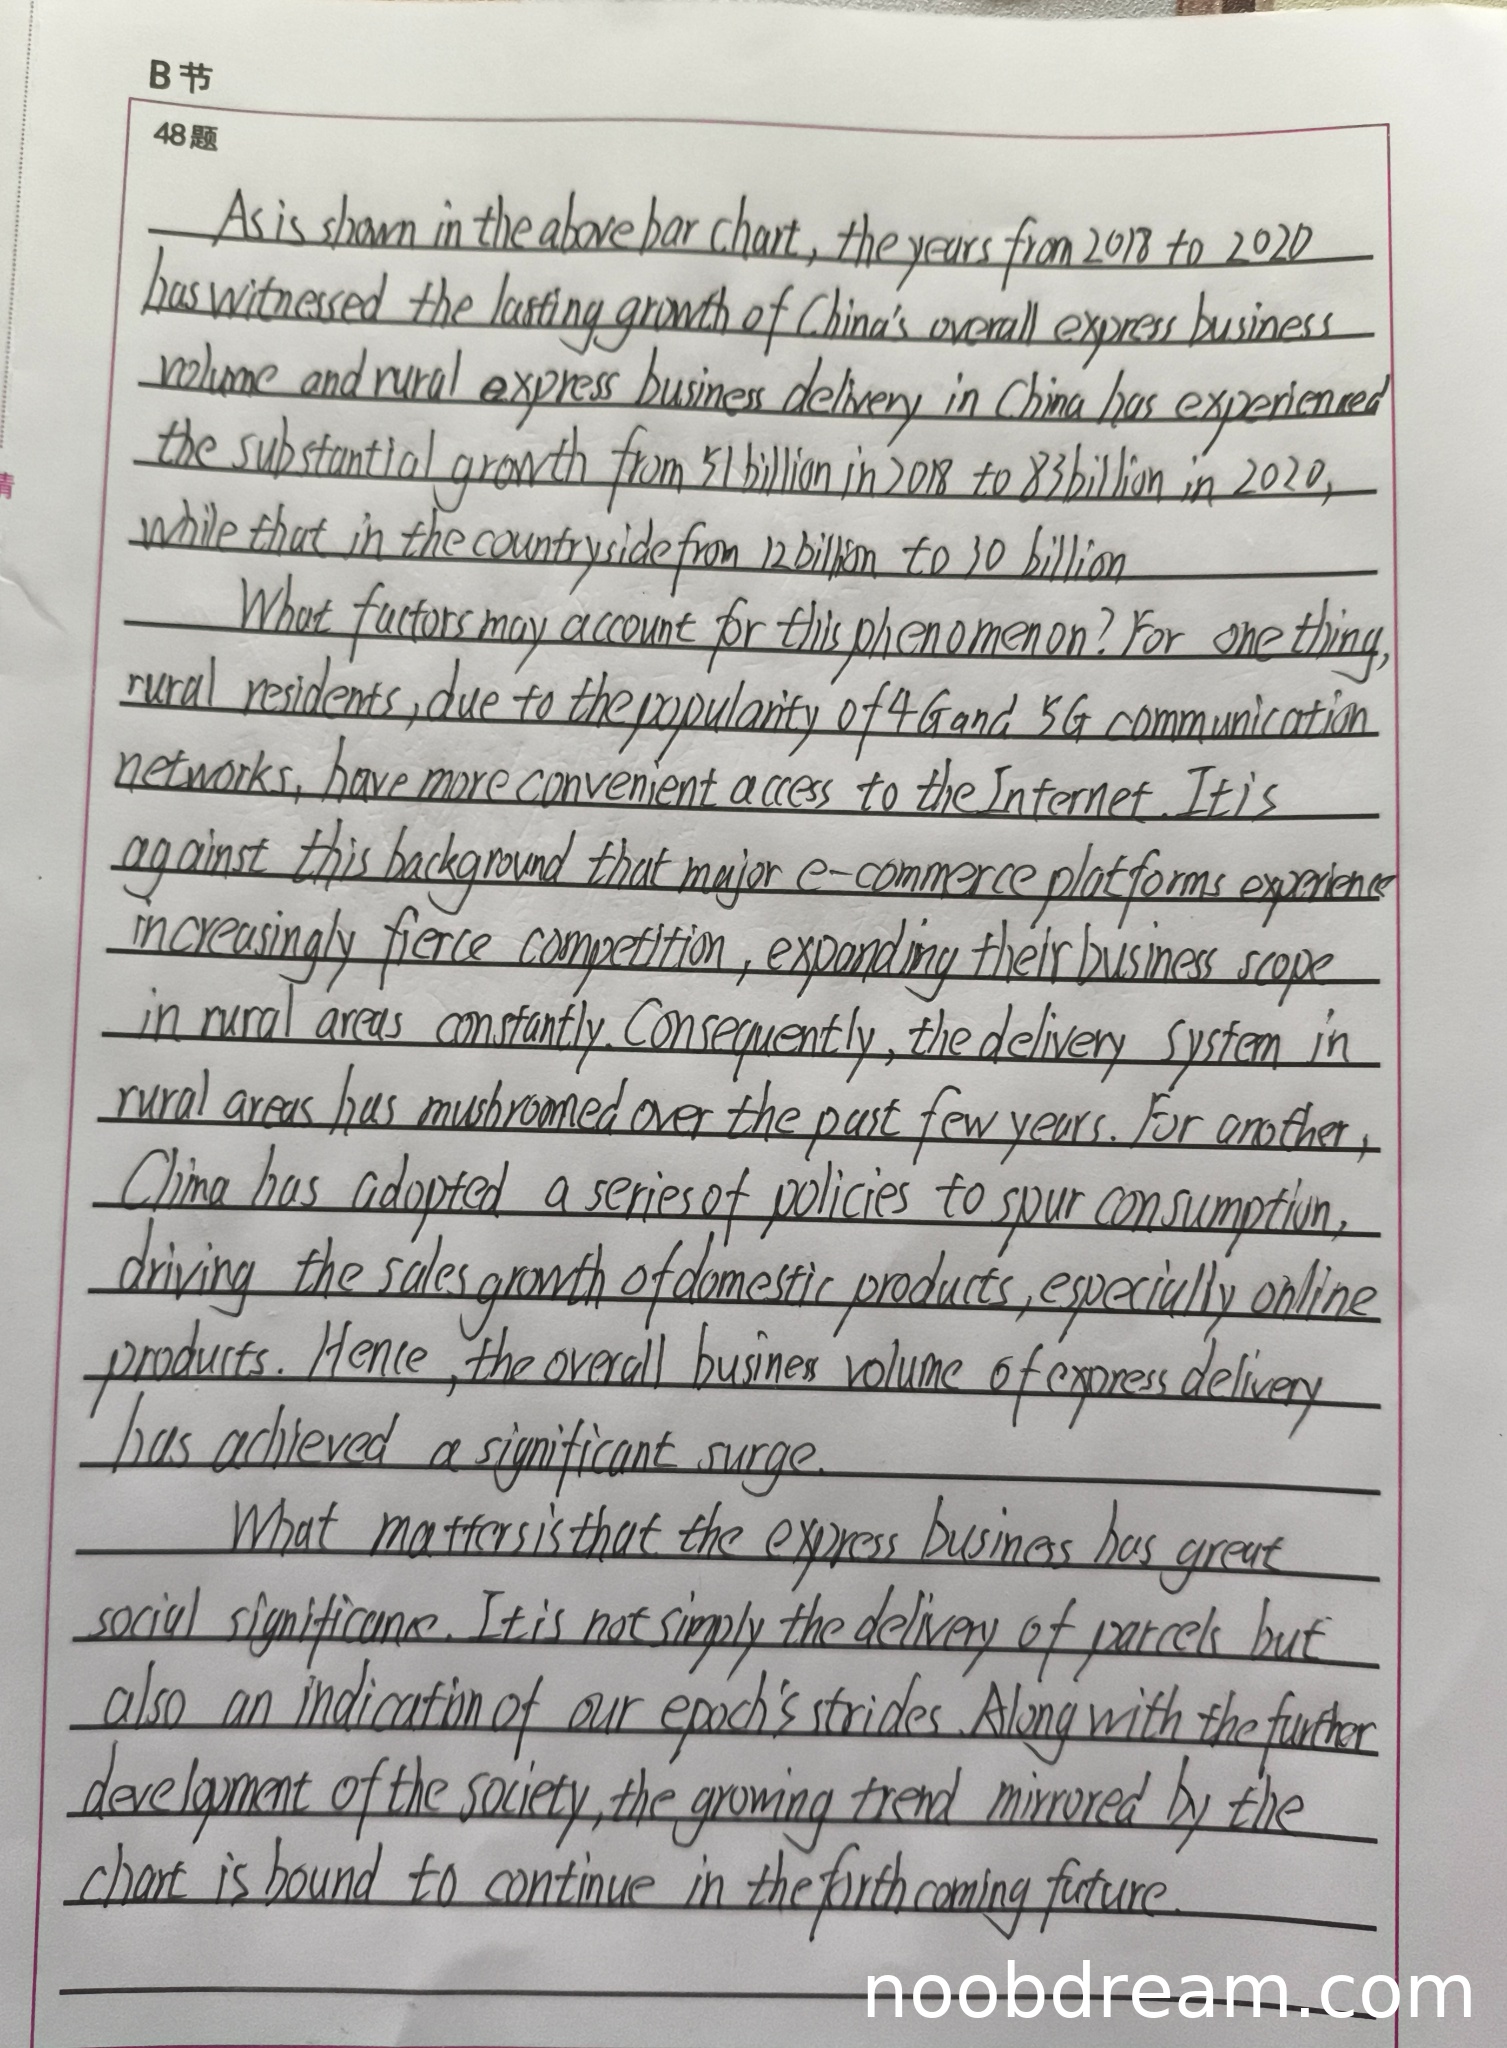 B节
48题
As is shown in the above bar chart, the years from 2018 to 2020
has witnessed the lasting growth of China's overall express business
volume and rural express business delivery in China has experienced
the substantial growth from 51 billion in 2018 to 83 billion in 2020,
while that in the countryside from 12 billion to 30 billion
What factors may account for this phenomenon? For one thing,
rural residents, due to the popularity of 4G and 5G communication
networks, have more convenient access to the Internet. It is
against this background that major e-commerce platforms experience
increasingly fierce competition, expanding their business scope
in rural areas constantly. Consequently, the delivery system in
rural areas has mushroomed over the past few years. For another,
China has adopted a series of policies to spur consumption,
driving the sales growth of domestic products, especially online
products. Hence, the overall business volume of express delivery
has achieved a significant surge.
What matters is that the express business has great
social significance. It is not simply the delivery of parcels but
also an indication of our epoch's strides. Along with the further
development of the society, the growing trend mirrored by the
chart is bound to continue in the forthcoming future.
noobdream.com